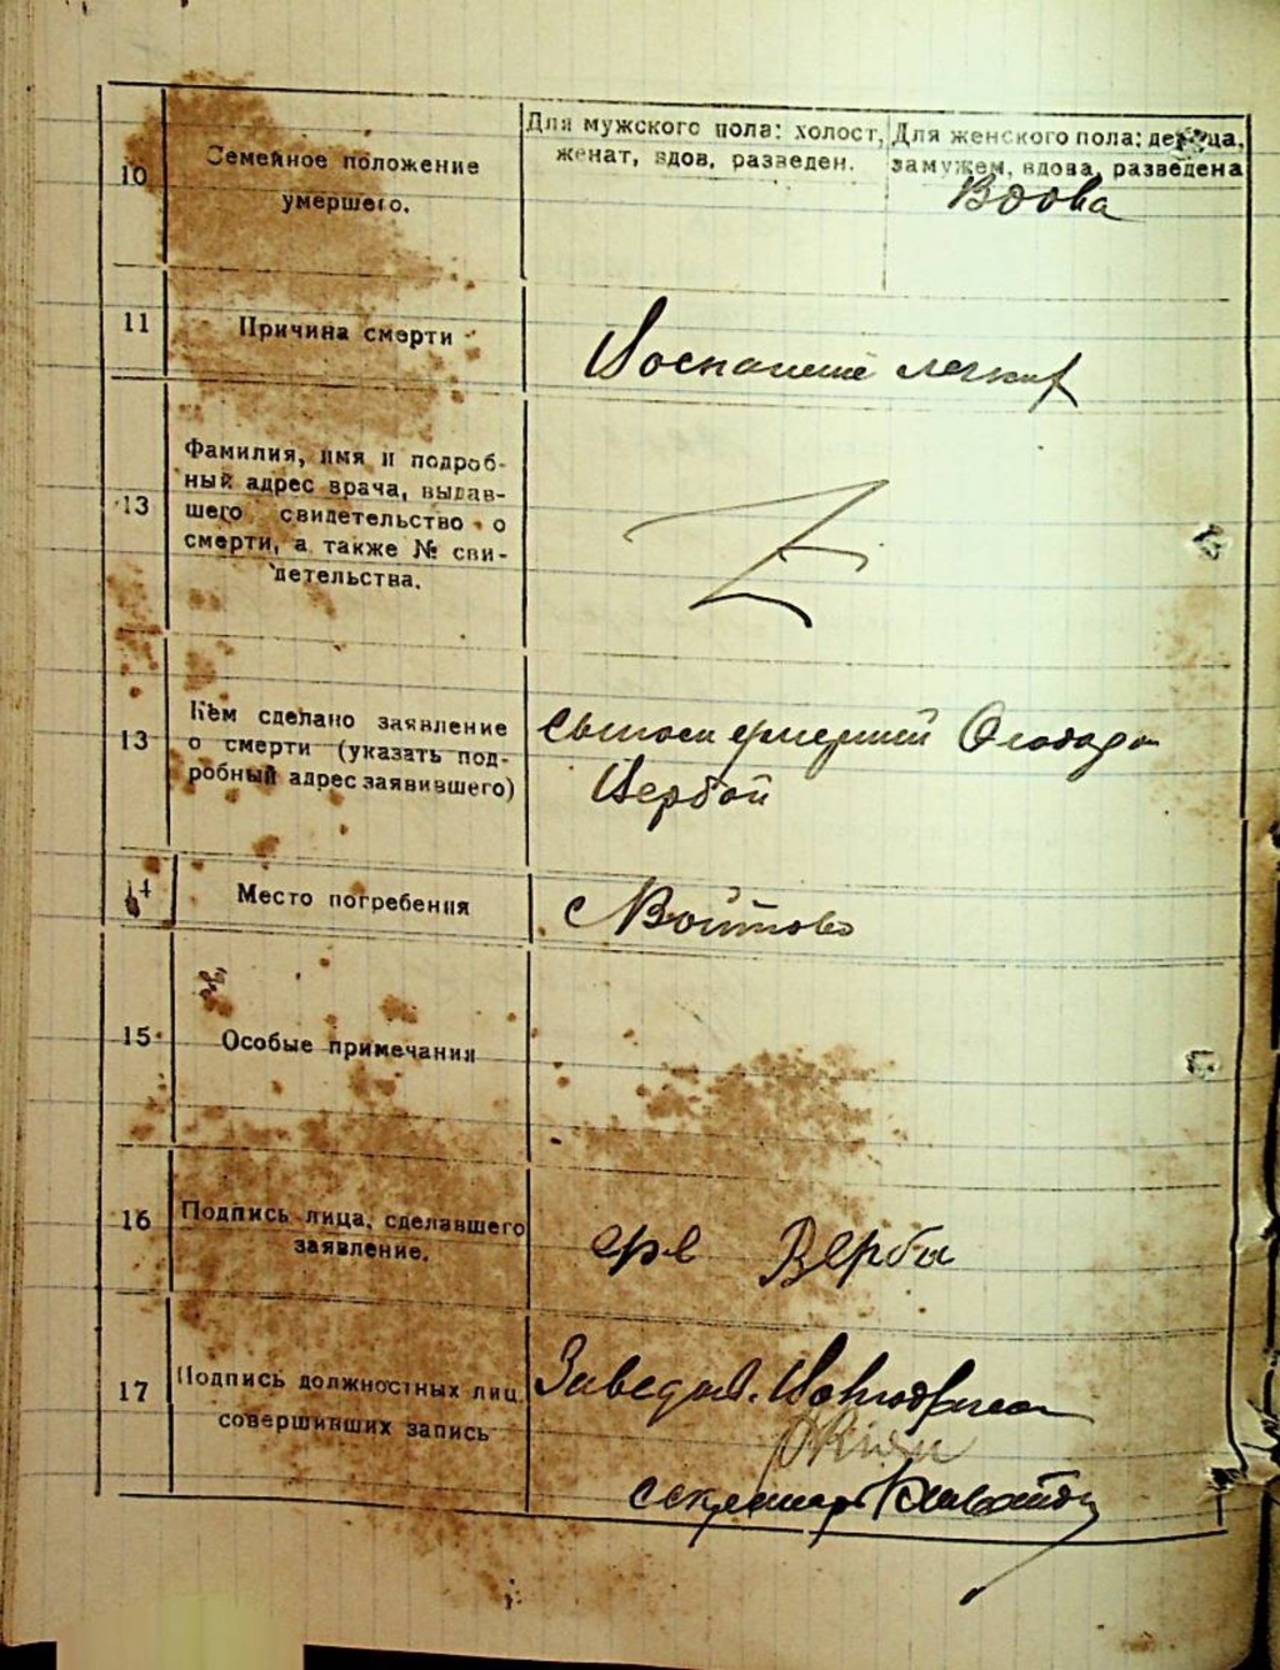 Для мужского пола: холост,
женат, вдов, разведен.
Для женского пола: девица,
замужем, вдова, разведена
10
Семейное положение
умершего.
Вдова
11
Причина смерти
Воспаление легких
13
Фамилия, имя и подроб-
ный адрес врача, выдав-
шего свидетельство о
смерти, а также № сви-
детельства.
13
Кем сделано заявление
о смерти (указать под-
робный адрес заявившего)
Сыном
Вербой
14
Место погребения
с Войтово
15
Особые примечания
16
Подпись лица, сделавшего
заявление.
Верба
17
Подпись должностных лиц,
совершивших запись
Заведов.
секретарь